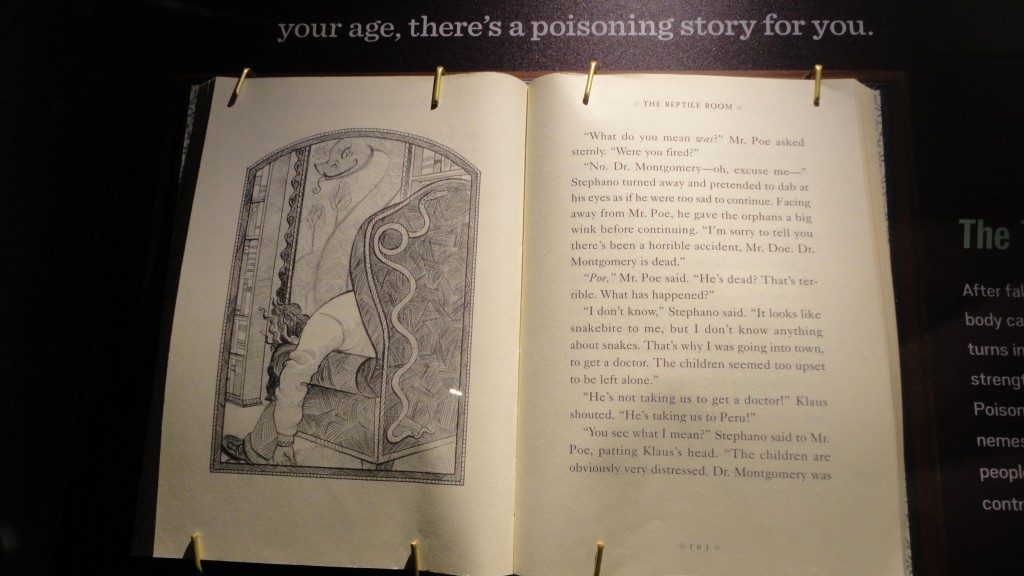 your age, there's a poisoning story for you.
THE REPTILE ROOM
"What do you mean was?" Mr. Poe asked
sternly. "Were you fired?"
"No. Dr. Montgomery—oh, excuse me—"
Stephano turned away and pretended to dab at
his eyes as if he were too sad to continue. Facing
away from Mr. Poe, he gave the orphans a big
wink before continuing. "I'm sorry to tell you
there's been a horrible accident, Mr. Doe. Dr.
Montgomery is dead."
"Poe," Mr. Poe said. "He's dead? That's ter-
rible. What has happened?"
"I don't know," Stephano said. "It looks like
snakebite to me, but I don't know anything
about snakes. That's why I was going into town,
to get a doctor. The children seemed too upset
to be left alone."
"He's not taking us to get a doctor!" Klaus
shouted. "He's taking us to Peru!"
"You see what I mean?" Stephano said to Mr.
Poe, patting Klaus's head. "The children are
obviously very distressed. Dr. Montgomery was
103
The
After fal
body ca
turns in
strengt
Poison
nemes
people
contr